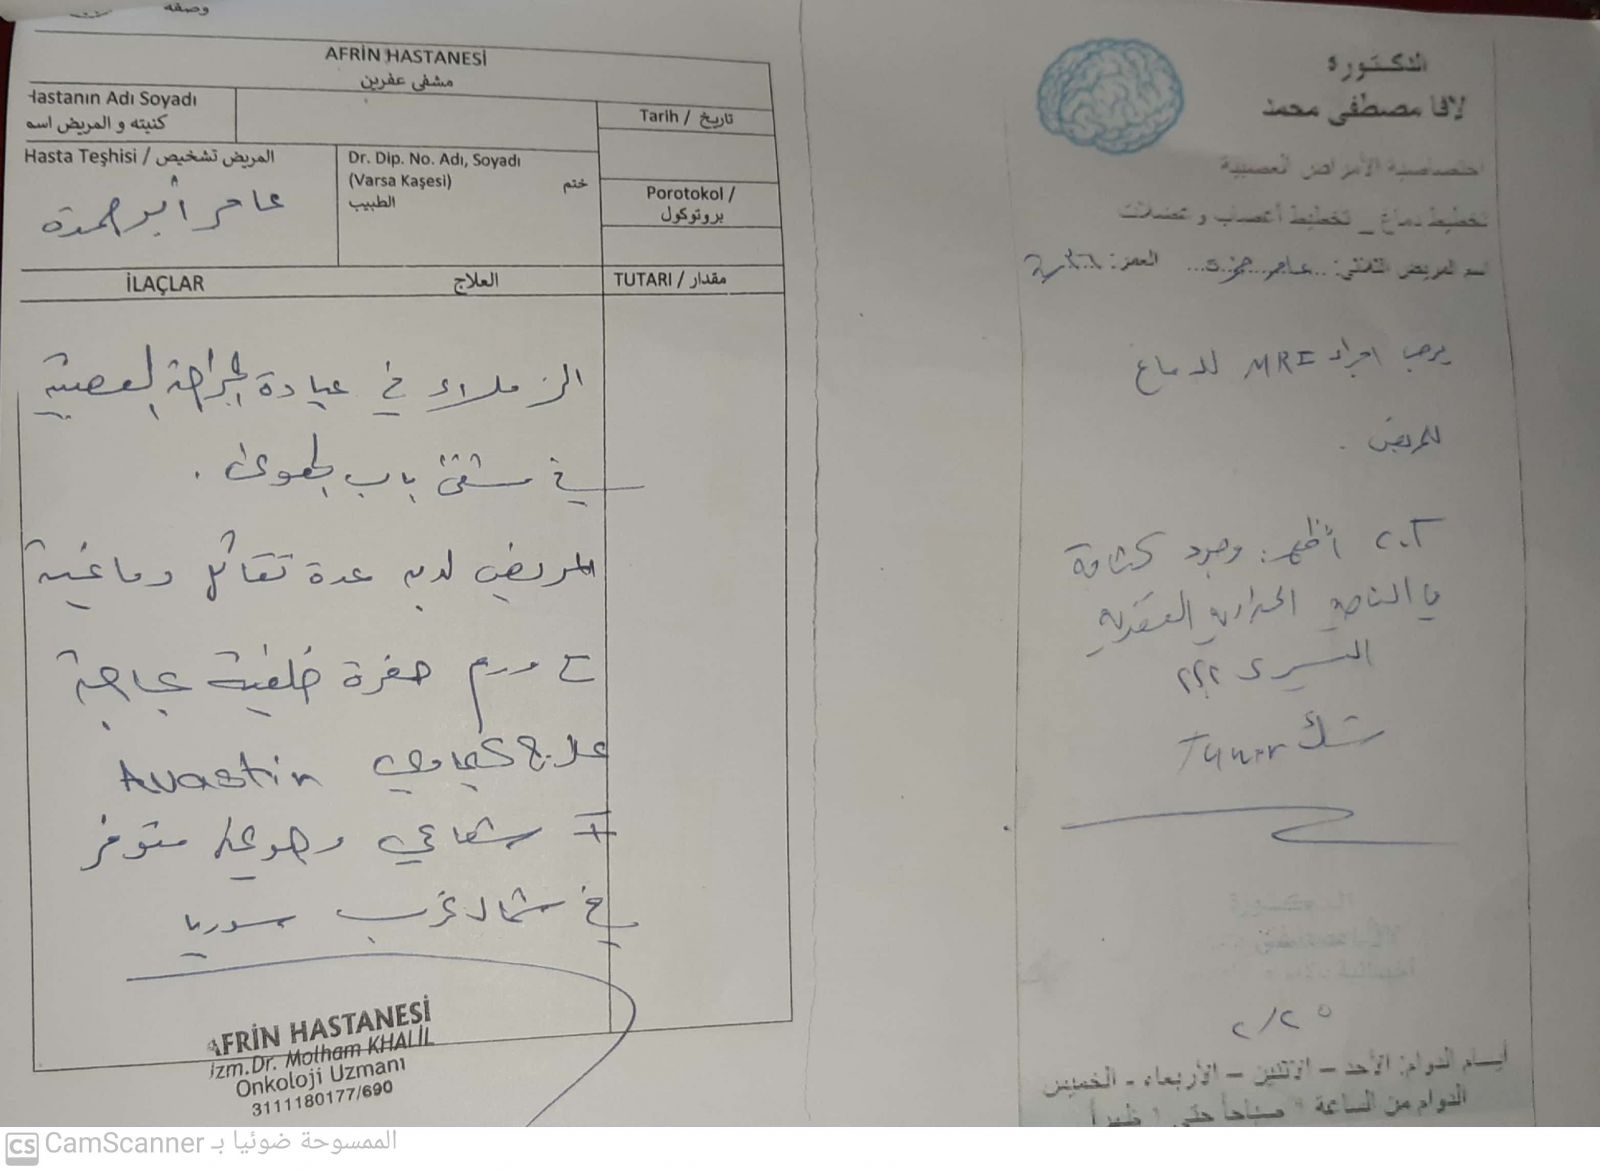 وصفه
AFRİN HASTANESİ
مشفى عفرين
Hastanın Adı Soyadı
كنيته و المريض اسم
Tarih / تاريخ
Hasta Teşhisi / المريض تشخيص
عامر أبو حمزة
Dr. Dip. No. Adı, Soyadı
(Varsa Kaşesi) ختم
الطبيب
Porotokol /
بروتوكول
İLAÇLAR العلاج TUTARI / مقدار
الزملاء في عيادة الجراحة العصبية
في مشفى باب الهوى .
المريض لديه عدة نقائل دماغية
ورم حفرة خلفية بحاجة
علاج كيماوي Avastin
± شعاعي وهو غير متوفر
في شمال غرب سوريا
AFRİN HASTANESİ
Uzm.Dr. Molham KHALİL
Onkoloji Uzmanı
3111180177/690
الدكتورة
لافا مصطفى محمد
اختصاصية الأمراض العصبية
تخطيط دماغ _ تخطيط أعصاب و عضلات
اسم المريض الثلاثي: عامر حمزة العمر: ٣٦ سنة
يرجى اجراء MRI للدماغ
للمريض .
أظهر وجود كثافة
اليسرى ؟؟؟
شك Tumor
الدكتورة
٢/٢٥
أيام الدوام: الأحد – الاثنين – الأربعاء - الخميس
الدوام من الساعة صباحاً حتى ظهراً
CS CamScanner الممسوحة ضوئيا بـ